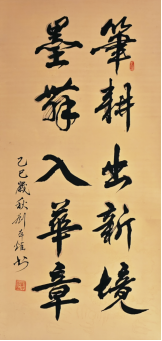 筆耕出新境
墨舞入華章
乙巳歲秋劉書